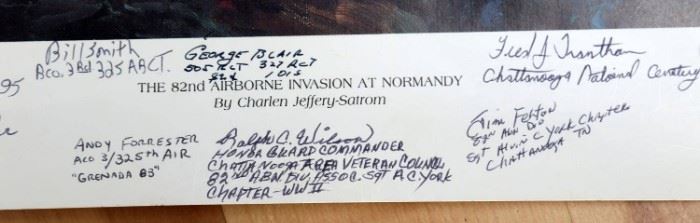 Bill Smith
Bco. 3Rd 325 ABCT.
GEORGE BLAIR
505 RCT 327 RCT
82d 101S
THE 82nd AIRBORNE INVASION AT NORMANDY
By Charlen Jeffery-Satrom
Fred J Trantham
Chattanooga National Cemetery
95
ANDY FORRESTER
ACO 3/325th AIR
"GRENADA 83"
Ralph C. Wilson
HONOR GUARD COMMANDER
CHATTANOOGA AREA VETERAN COUNCIL
82nd ABN DIV, ASSOC. SGT A.C. YORK
CHAPTER-WW II
Jim Felton
82nd Abn Div
Sgt Alvin C York Chapter
Chattanooga TN